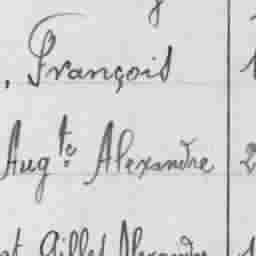 , François 1
Aug.te Alexandre 2
st Gilles Alexandre 1